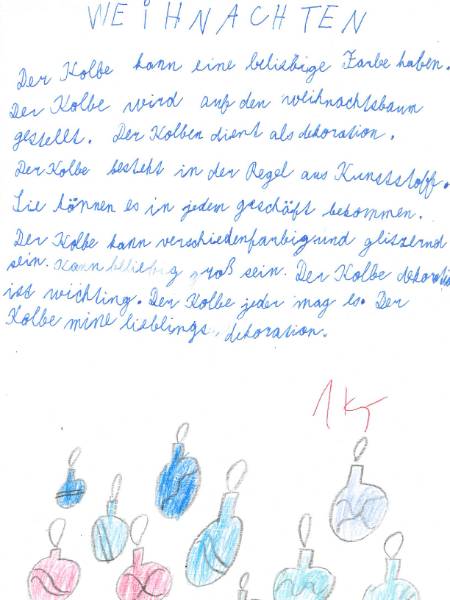 WEIHNACHTEN
Der Kolbe kann eine beliebige Farbe haben.
Der Kolbe wird auf den weihnachtsbaum
gestellt. Der Kolben dient als dekoration.
Der Kolbe besteht in der Regel aus Kunststoff.
Sie können es in jedem geschäft bekommen.
Der Kolbe kann verschiedenfarbig und glitzernd
sein. Kann beliebig groß sein. Der Kolbe dekoratio
ist wichting. Der Kolbe jeder mag es. Der
Kolbe mine lieblings, dekoration.